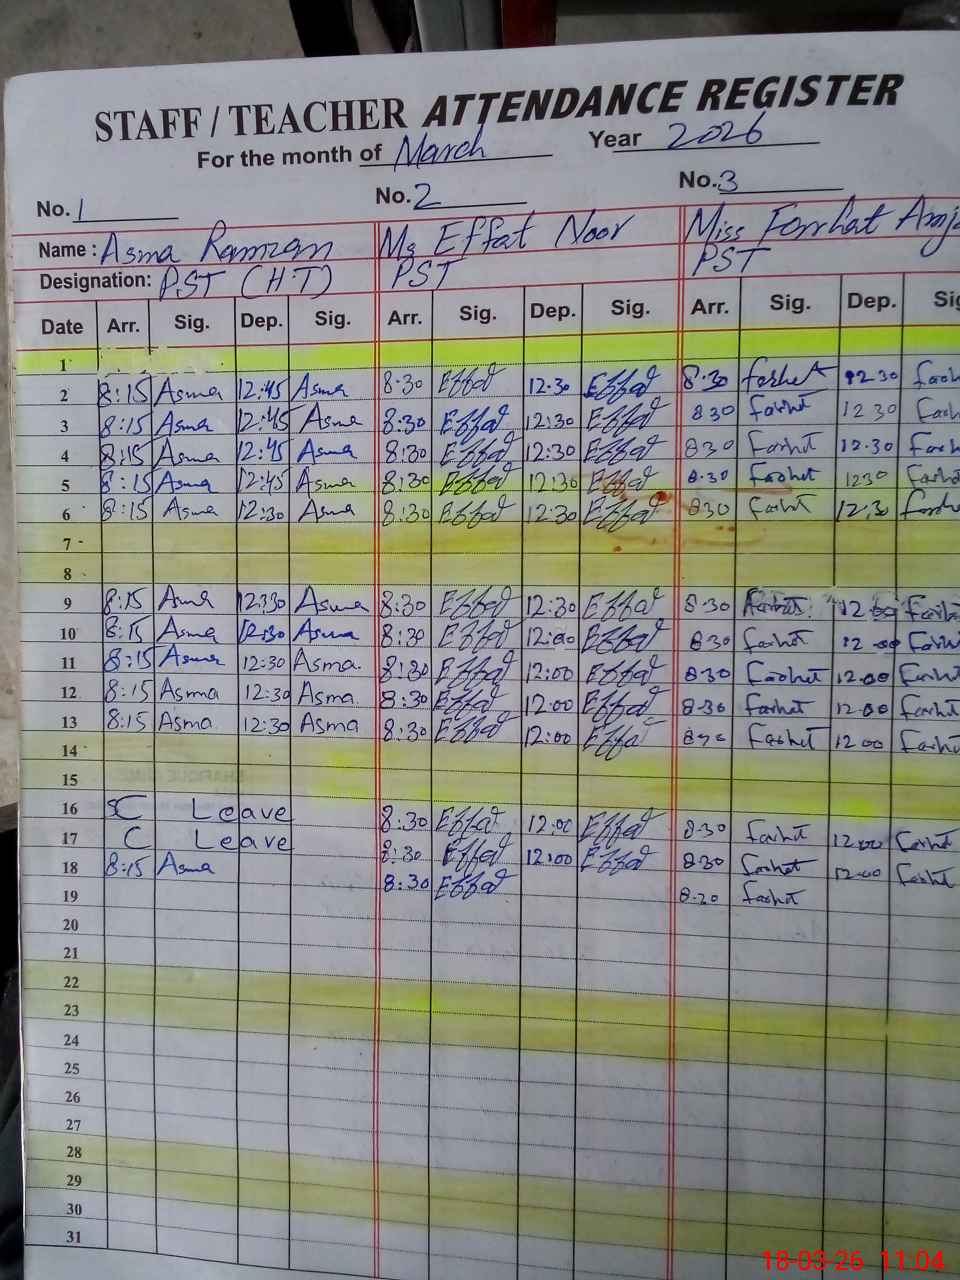 STAFF / TEACHER ATTENDANCE REGISTER
For the month of March Year 2026
No. 1 No. 2 No. 3
Name : Asma Ramzan Ms Effat Noor Miss Farhat Amja
Designation: P.ST (H.T) PST PST
Date Arr. Sig. Dep. Sig. Arr. Sig. Dep. Sig. Arr. Sig. Dep. Sig
1
2 8:15 Asma 12:45 Asma 8:30 Effat 12:30 Effat 8:30 farhat 12 30 farh
3 8:15 Asma 12:45 Asma 8:30 Effat 12:30 Effat 8 30 farhat 12 30 Farh
4 8:15 Asma 12:45 Asma 8:30 Effat 12:30 Effat 8 30 Farhat 12.30 Farh
5 8:15 Asma 12:45 Asma 8:30 Effat 12:30 Effat 8.30 Farhat 1230 Farh
6 8:15 Asma 12:30 Asma 8:30 Effat 12:30 Effat 830 Farhat 12.30 Farha
7
8
9 8:15 Asma 12:30 Asma 8:30 Effat 12:30 Effat 8.30 Farhat 12 Farhat
10 8:15 Asma 12:30 Asma 8:30 Effat 12:00 Effat 8.30 farhat 12 00 Farhat
11 8:15 Asma 12:30 Asma. 8:30 Effat 12:00 Effat 8.30 Farhat 12.00 Farhat
12 8:15 Asma 12:30 Asma 8:30 Effat 12:00 Effat 8.30 Farhat 12.00 Farhat
13 8:15 Asma 12:30 Asma 8:30 Effat 12:00 Effat Farhat 12 00 Farhat
14
15
16 C Leave 8:30 Effat 12:00 Effat 8.30 Farhat 12.00 Farhat
17 C Leave 8:30 Effat 12:00 Effat 8.30 Farhat 12.00 Farhat
18 8:15 Asma 8:30 Effat 8.30 Farhat
19
20
21
22
23
24
25
26
27
28
29
30
31
18-03-26 11:04